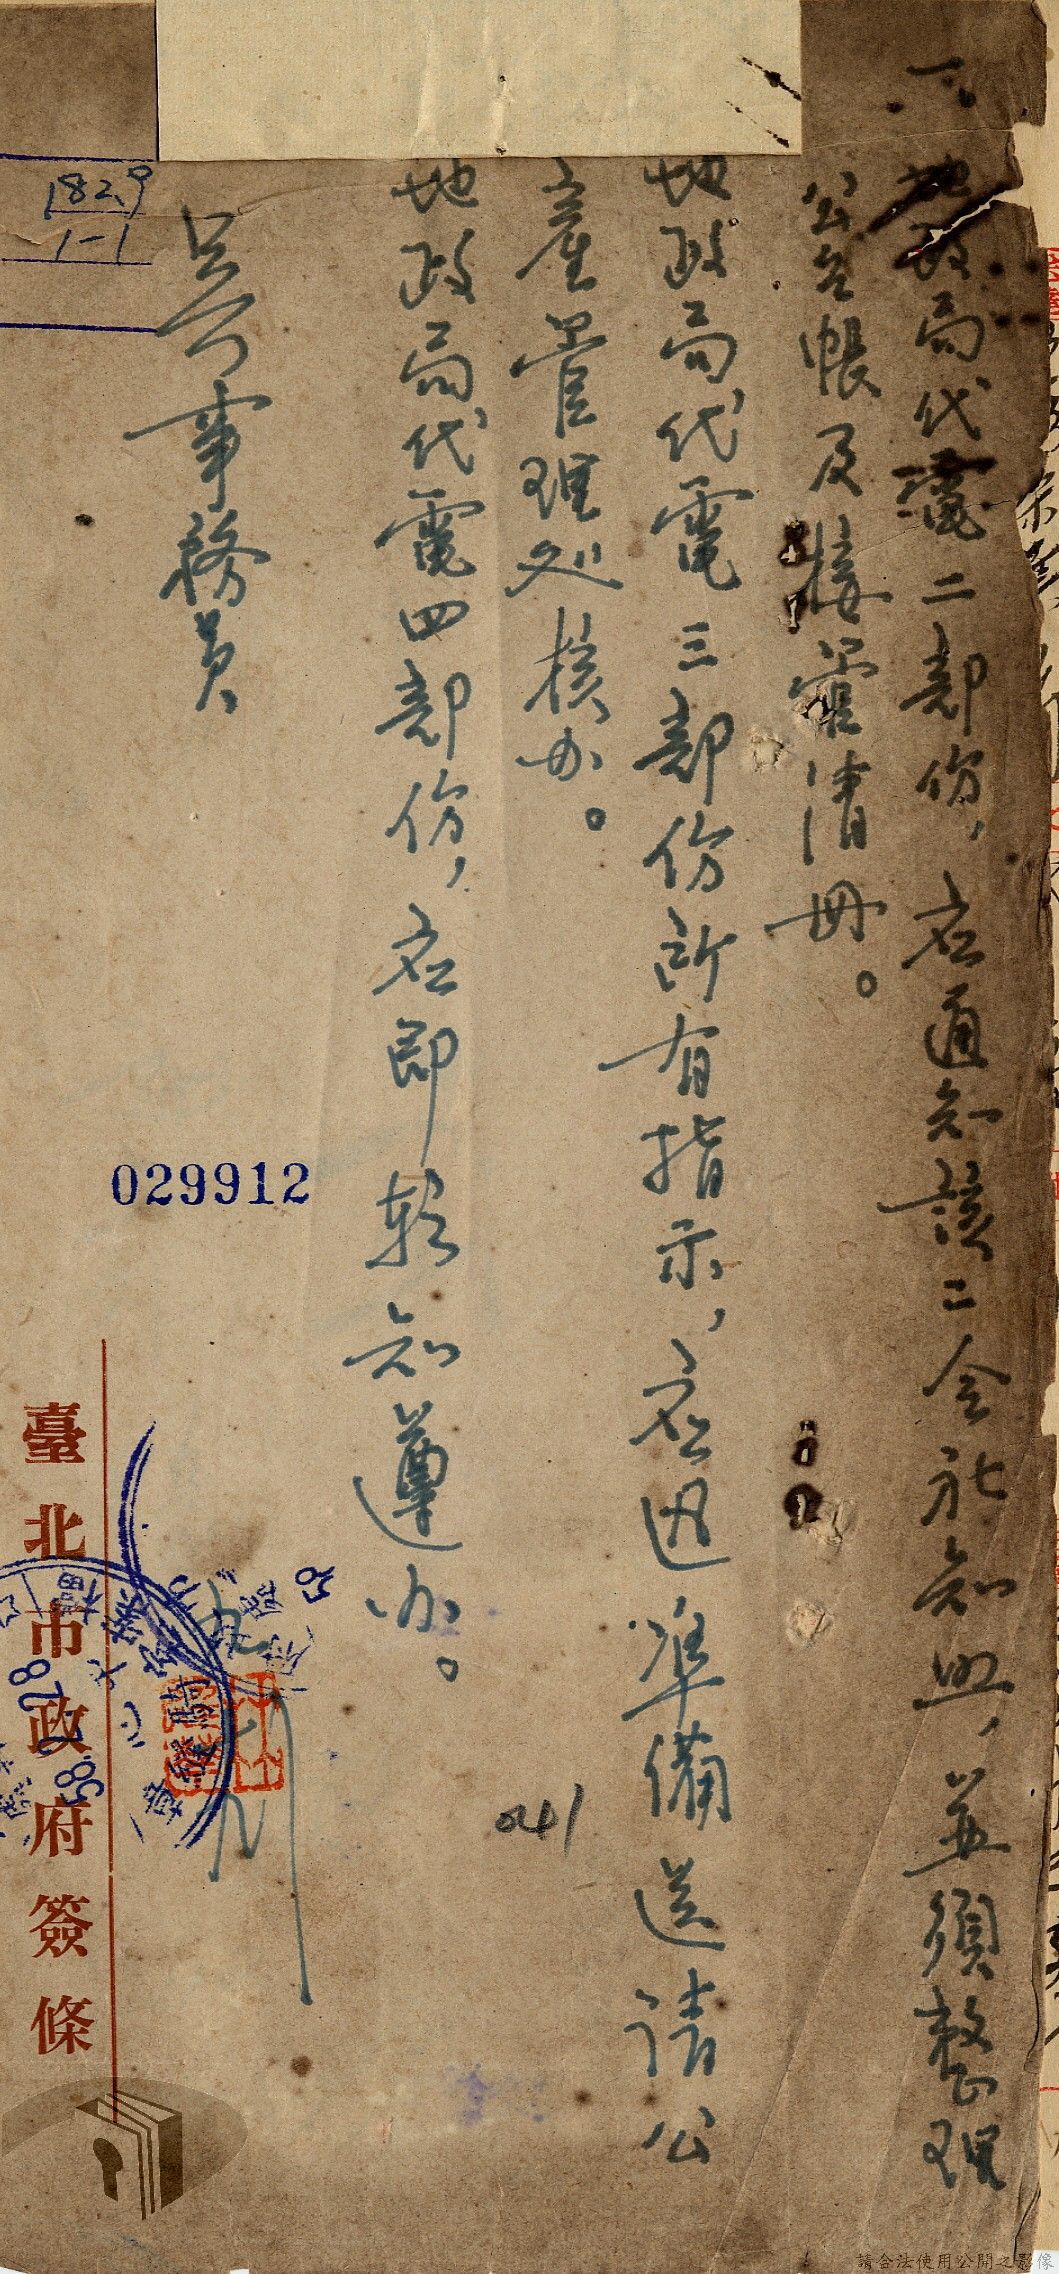 一、地政局代電二部份，應通知該二會社知照，並須整理
公產帳及接管清冊。
地政局代電三部份所有指示，應迅準備送請公
產管理処核办。
地政局代電四部份，應即轉知遵办。
吳 事務員
182.9
1-1
029912
041
臺北市政府簽條
請合法使用公開之影像